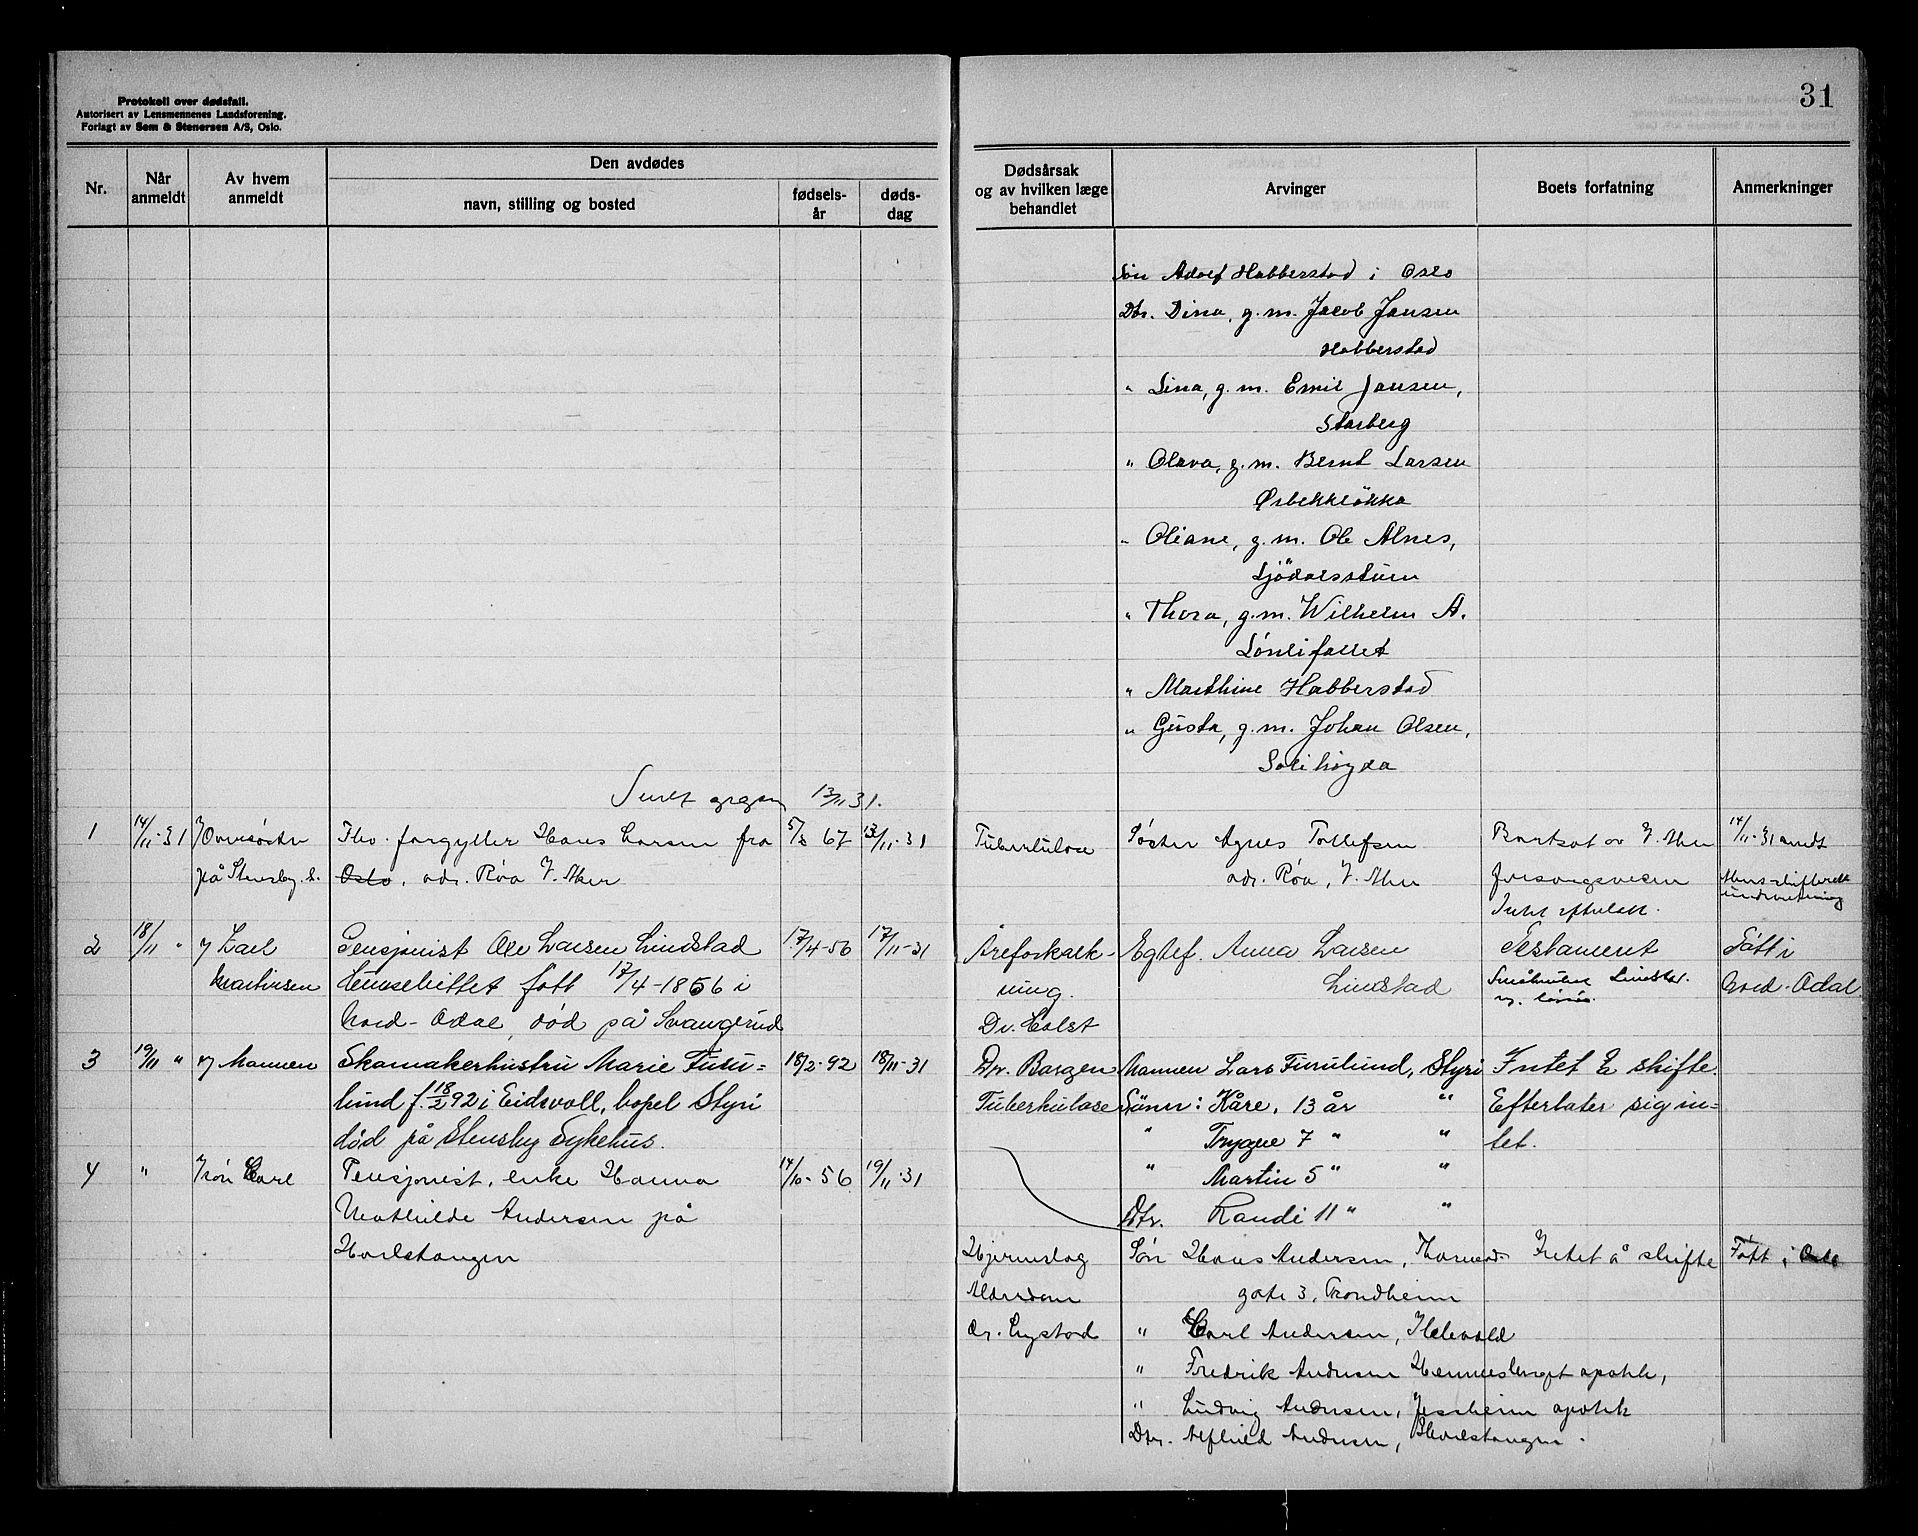 Protokoll over dødsfall.
Autorisert av Lensmennenes Landsforening.
Forlagt av Sem & Stenersen A/S, Oslo.
31
Nr.
Når anmeldt
Av hvem anmeldt
Den avdødes
navn, stilling og bosted
fødsels-
år
døds-
dag
Dødsårsak
og av hvilken læge
behandlet
Arvinger
Boets forfatning
Anmerkninger
Søn Adolf Habberstad i Oslo
Dtr. Dina, g.m. Jacob Jansen
Habberstad
" Lina, g.m. Emil Jansen,
Starberg
" Olava, g.m. Bernt Larsen
Ørbekkløkka
" Oliane, g.m. Ole Alnes,
" Thora, g.m. Wilhelm A.
Lönlifallet
" Marthine Habberstad
" Gusta, g.m. Johan Olsen,
Solihøgda
13/11 31.
1
14/11-31
på Stensby s.
Fhv. forgyller Hans Larsen fra
Oslo, adr. Røa V. Aker
5/8 67
13/11-31
Tuberkulose
Søster Agnes Tollefsen
adr. Røa, V. Aker
V. Aker
forsorgsvesen
14/11-31 sendt
underretning
2
18/11 "
Martinsen
Pensjonist Ole Larsen Lindstad
født 17/4-1856 i
Nord-Odal, død på Svangerud
17/4-56
17/11-31
Åreforkalk-
ning.
Dr. Holst
Egtef. Anna Larsen
Lindstad
Testament
Født i
Nord-Odal
3
19/11 "
Mannen
Skomakerhustru Marie Furu-
lund f. 18/2 92 i Eidsvoll, bopel Styri
død på Stensby Sykehus.
18/2-92
18/11-31
Dr. Borgen
Tuberkulose
Mannen Lars Furulund, Styri
Sönn: Kåre, 13 år "
" Trygve 7 " "
" Martin 5 " "
Dtr. Randi 11 " "
Intet å skifte.
Efterlater sig in-
tet.
4
"
Søn Carl
Pensjonist, enke Hanna
Mathilde Andersen på
Haralstangen
14/10-56
19/11-31
Hjerneslag
Alderdom
dr. Lystad
Søn Hans Andersen,
gate 3, Trondheim
" Carl Andersen,
" Fredrik Andersen
" Ludvig Andersen, Jessheim apotek
Dtr. Alfhild Andersen, Haralstangen.
Intet å skifte
Født i Oslo